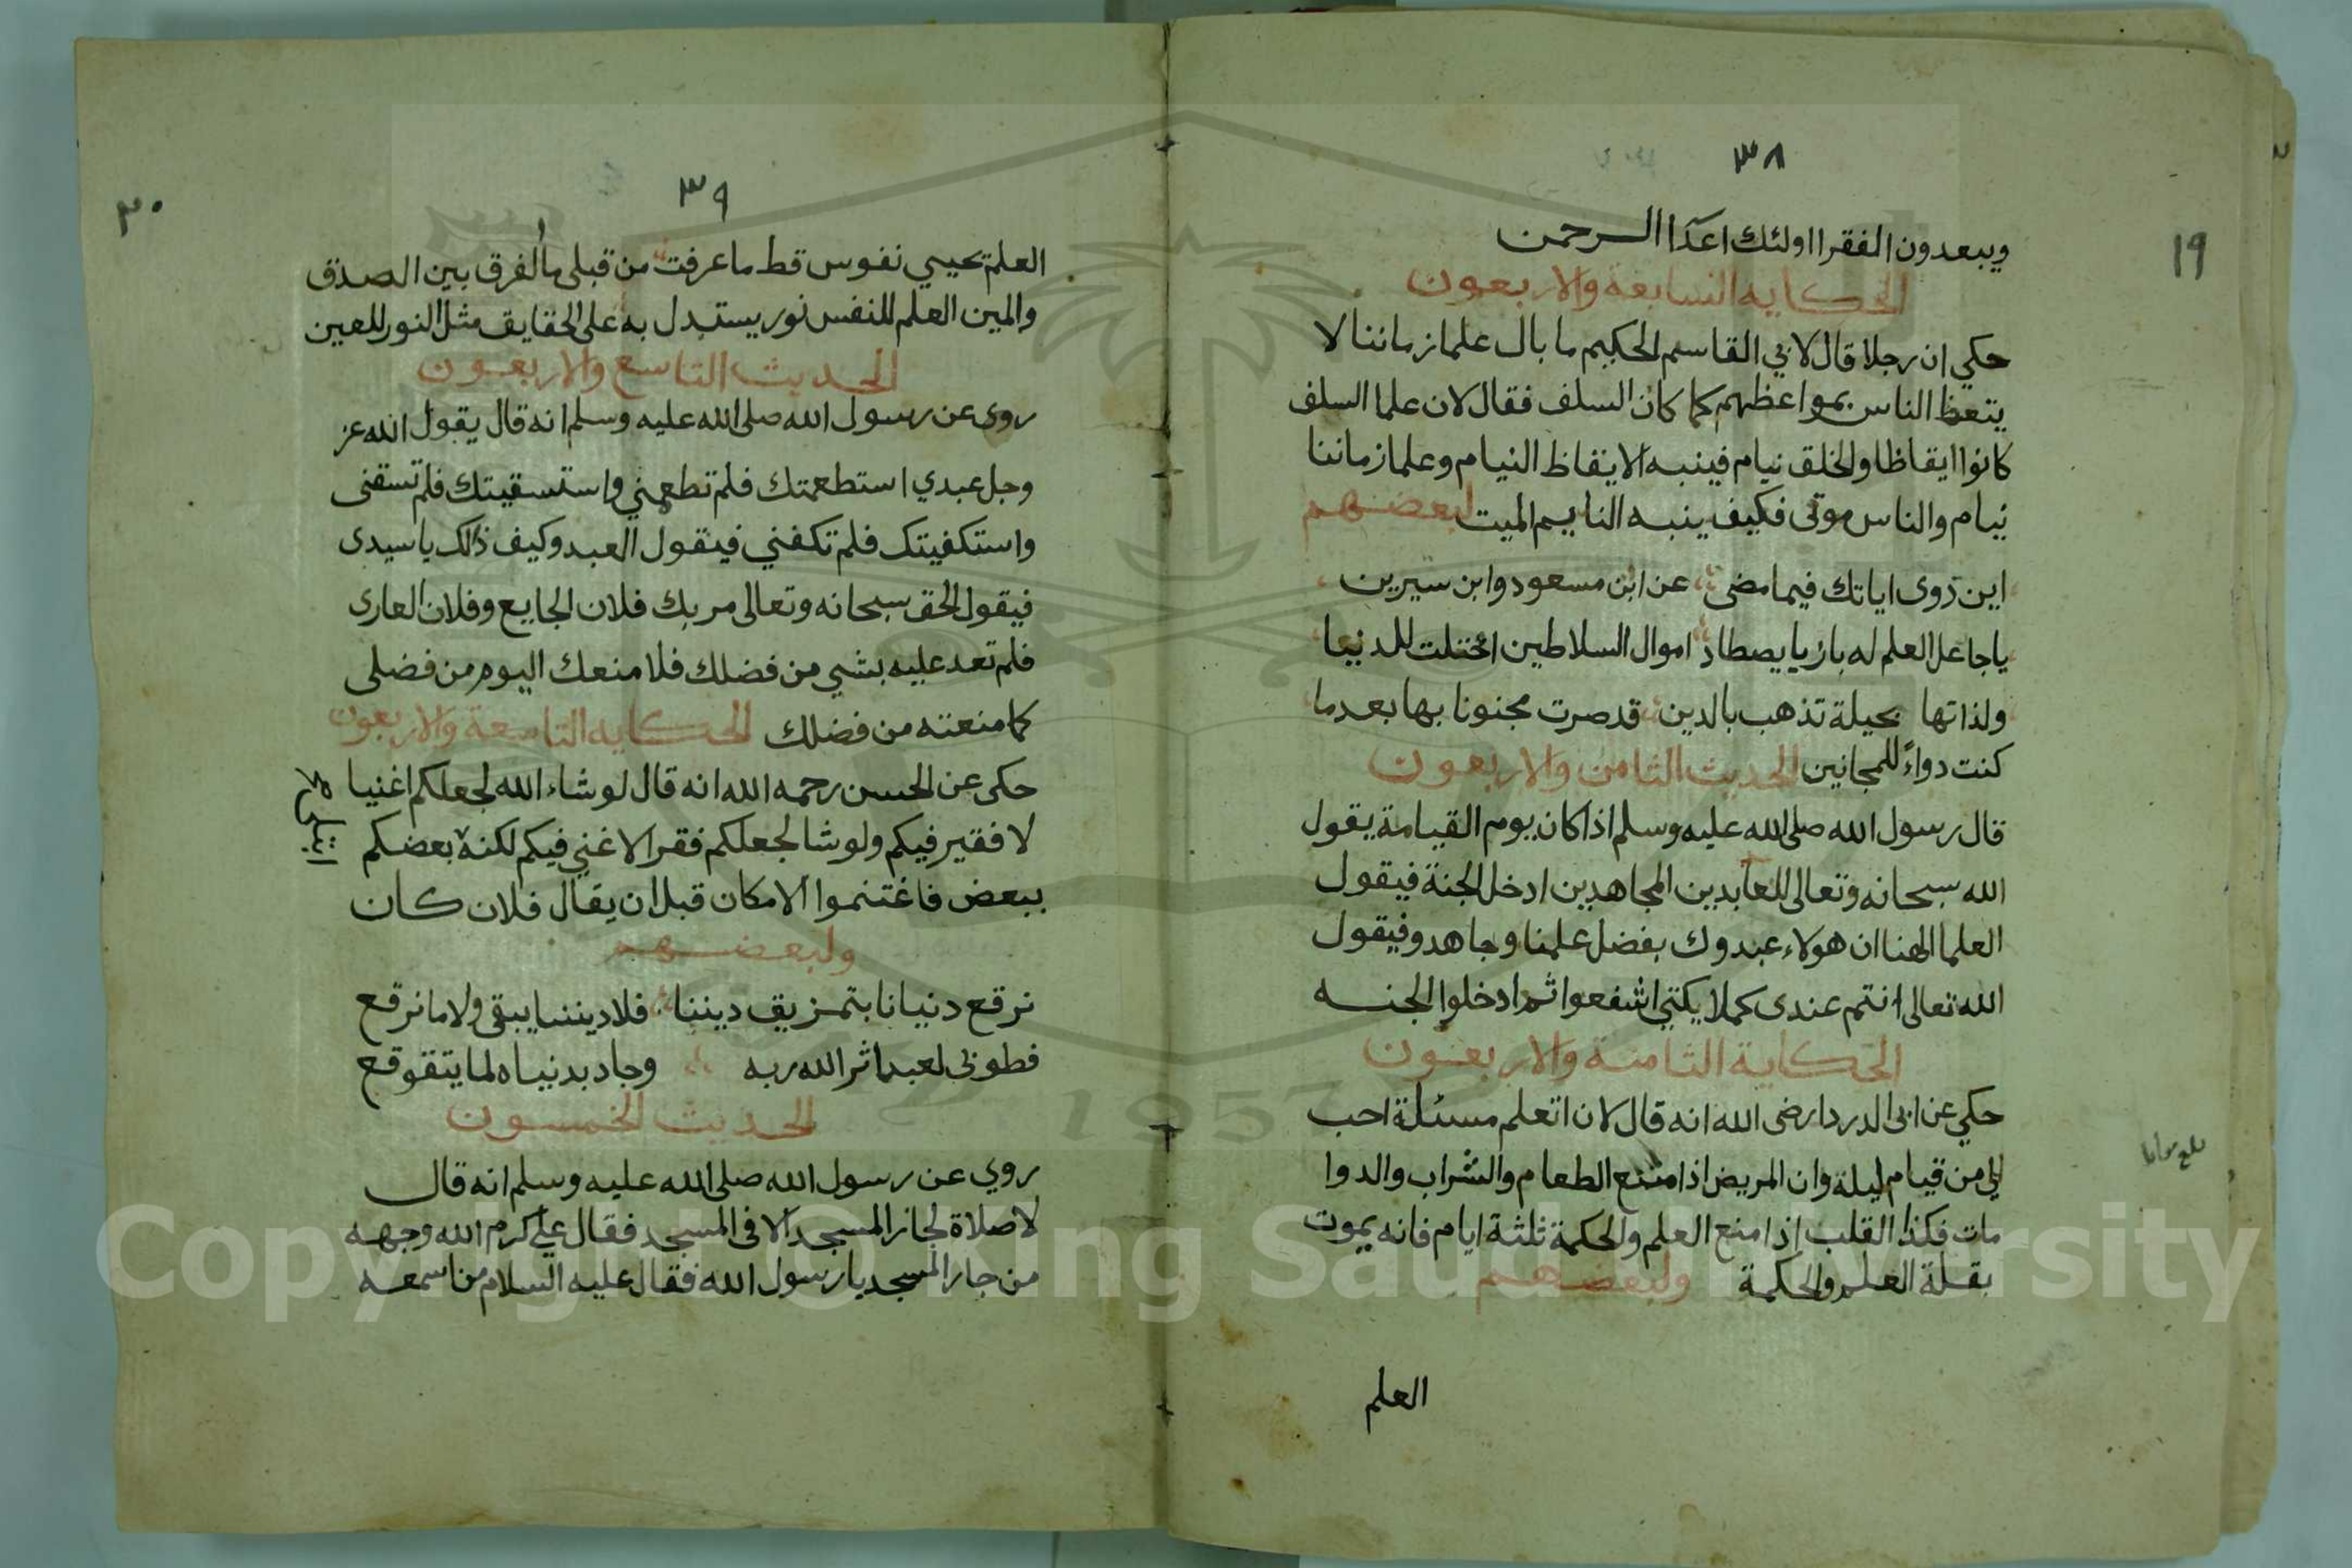 ٣٨
١٩
ويبعدون الفقرا اولئك اعدآا الرحمن
الحكايه السابعة والاربعون
حكي ان رجلا قال لابي القاسم الحكيم ما بال علما زماننا لا
يتعظ الناس بمواعظهم كما كان السلف فقال لان علما السلف
كانوا ايقاظا والخلق نيام فينبه الايقاظ النيام وعلما زماننا
نيام والناس موتى فكيف ينبه النايم الميت لبعضهم
اين روى اياتك فيما مضى عن ابن مسعود وابن سيرين
يا جاعل العلم له بازيا يصطاد اموال السلاطين احتلت للدنيا
ولذاتها بحيلة تذهب بالدين قد صرت مجنونا بها بعد ما
كنت دواءً للمجانين الحديث الثامن والاربعون
قال رسول الله صلى الله عليه وسلم اذا كان يوم القيامة يقول
الله سبحانه وتعالى للعابدين المجاهدين ادخل الجنة فيقول
العلما الهنا ان هولاء عبدوك بفضل علمنا وجاهدو فيقول
الله تعالى انتم عندى كملايكتي اشفعوا ثم ادخلوا الجنه
الحكاية الثامنة والاربعون
حكي عن ابى الدردا رضى الله انه قال لان اتعلم مسئلة احب
الي من قيام ليلة وان المريض اذا منع الطعام والشراب والدوا
مات فكذا القلب اذا منع العلم والحكمة ثلثة ايام فانه يموت
بقلة العلم والحكمة ولبعضهم
العلم
٣٩
٢٠
العلم تحيي نفوس قط ما عرفت من قبلى ما الفرق بين الصدق
والمين العلم للنفس نور يستبدل به على الحقايق مثل النور للعين
الحديث التاسع والاربعون
روى عن رسول الله صلى الله عليه وسلم انه قال يقول الله عز
وجل عبدي استطعمتك فلم تطعمني واستسقيتك فلم تسقنى
واستكفيتك فلم تكفني فيقول العبد وكيف ذالك يا سيدى
فيقول الحق سبحانه وتعالى مر بك فلان الجايع وفلان العارى
فلم تعد عليه بشي من فضلك فلا منعك اليوم من فضلى
كما منعته من فضلك الحكايه التاسعة والاربعون
حكى عن الحسن رحمه الله انه قال لو شاء الله لجعلكم اغنيا
لا فقير فيكم ولو شا لجعلكم فقرا لا غني فيكم لكنه بعضكم
ببعض فاغتنموا الامكان قبل ان يقال فلان كان
ولبعضهم
نرقع دنيانا بتمزيق ديننا فلا ديننا يبقى ولا ما نرقع
فطوبى لعبد اثر الله ربه وجاد بدنياه لما يتقوقع
الحديث الخمسون
روي عن رسول الله صلى الله عليه وسلم انه قال
لا صلاة لجار المسجد الا فى المسجد فقال علي كرم الله وجهه
من جار المسجد يا رسول الله فقال عليه السلام من اسمعه
Copyright © King Saud University
1957